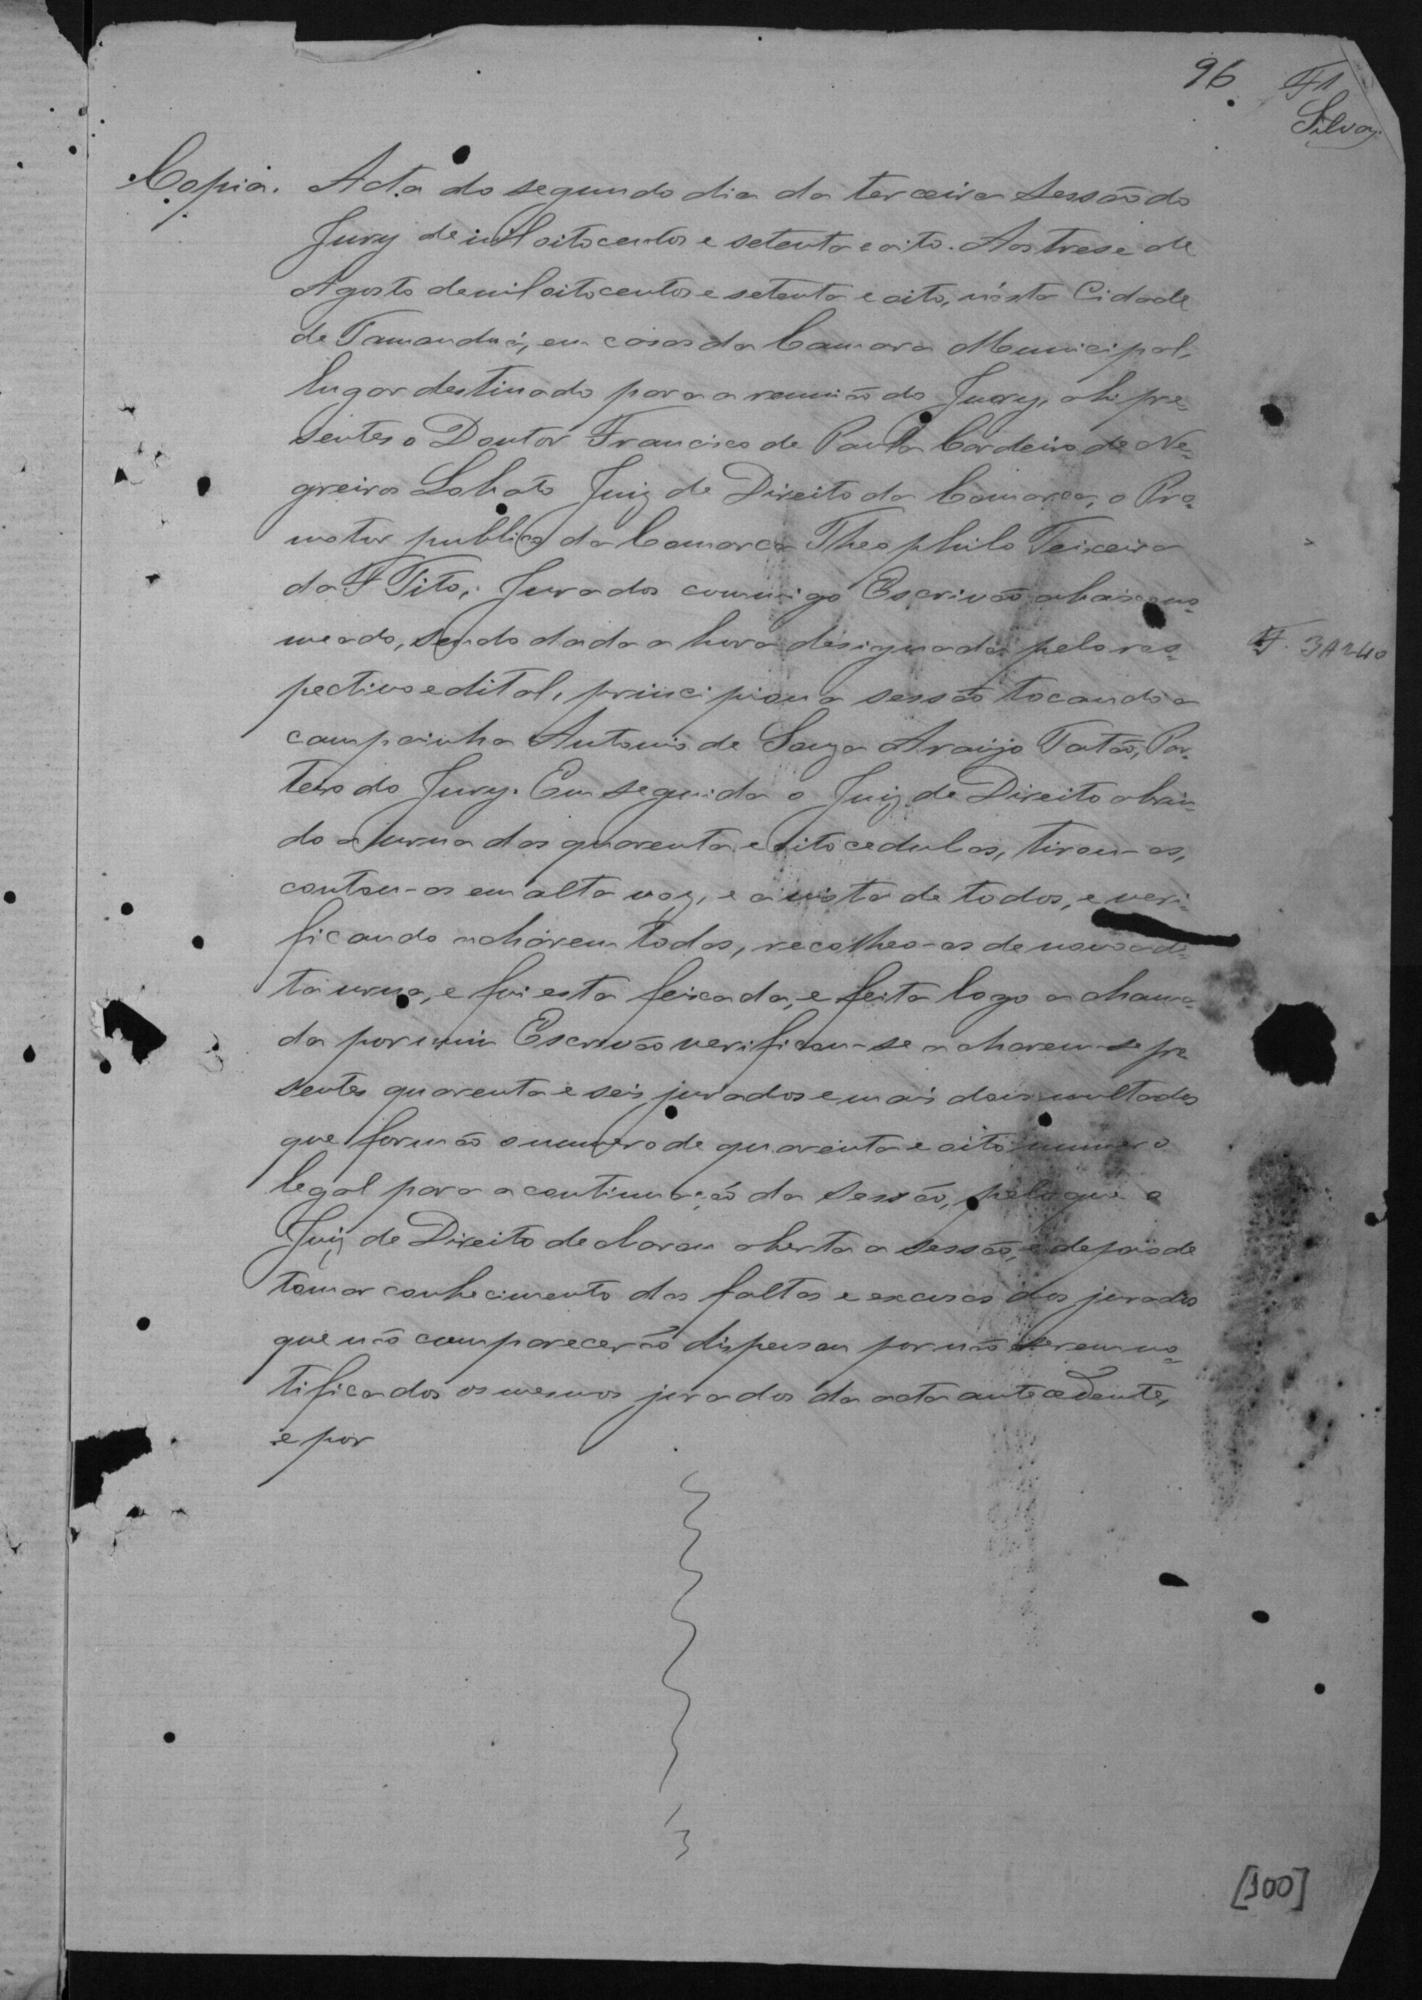 96
Silva
Copia. Acta do segundo dia da terceira Sessão do
Jury de mil oitocentos e setenta e oito. Aos trese de
Agosto de mil oitocentos e setenta e oito, nésta Cidade
de Tamanduá, em casas da Camara Municipal,
lugar destinado para a reunião do Jury, ahi pre=
sentes o Doutor Francisco de Paula Cordeiro de Ne=
greiros Lobato Juiz de Direito da Comarca, o Pro=
motor publico da Comarca Theophilo Teixeira
da Tito, Jurados commigo Escrivão abaixo no=
meado, sendo dada a hora designada pelo res=
pectivo edital, principiou a sessão tocando a
campainha Antonio de Souza Araújo Tatão, Por=
teiro do Jury. Em seguida o Juiz de Direito abrin=
do a urna das quarenta e oito cedulas, tirou-as,
contou-as em alta voz, e a vista de todos, e veri=
ficando achárem todas, recolheo-as de novo a di=
ta urna, e foi esta feixada, e feita logo a chama=
da por mim Escrivão verificou-se acharem-se pre
sentes quarenta e seis jurados e mais dois multados
que formão o numero de quarenta e oito numero
legal para a continuação da Sessão, pelo que o
Juiz de Direito declarou aberta a sessão, e depois de
tomar conhecimento das faltas e excusas dos jurados
que não comparecerão dispensou por não serem no=
tificados os mesmos jurados da acta antecedente,
e por
[100]